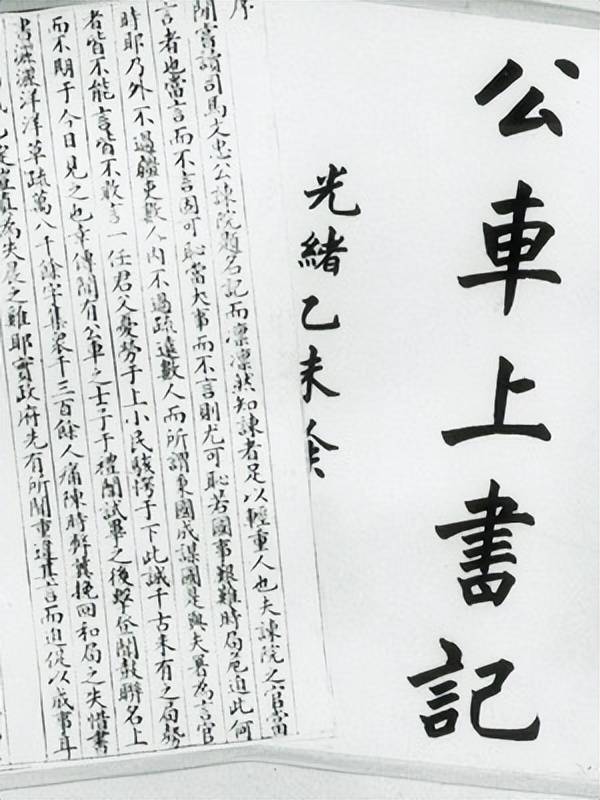 公車上書記
光緒乙未
序
聞嘗讀司馬文忠公諫院題名記而凛凛然知諫者足以輕重人也夫諫院之官當
言者也當言而不言固可恥當大事而不言則尤可恥若國事艱難時局危迫此何
時耶乃外不過疆吏數人內不過疏遠數人而所謂秉國成謀國是與夫署為言官
者皆不能言皆不敢言一任君父憂勞于上小民駭愕于下此誠千古未有之局勢
而不期于今日見之也幸傳聞有公車之士子于禮闈試畢之後擊登聞鼓聯名上
書灑灑洋洋草疏萬八千餘字集眾千三百餘人痛陳時弊冀挽回和局之失惜書
已定豈真為失晨之雞耶實政府先有所聞重違其言而迫促以成事耳